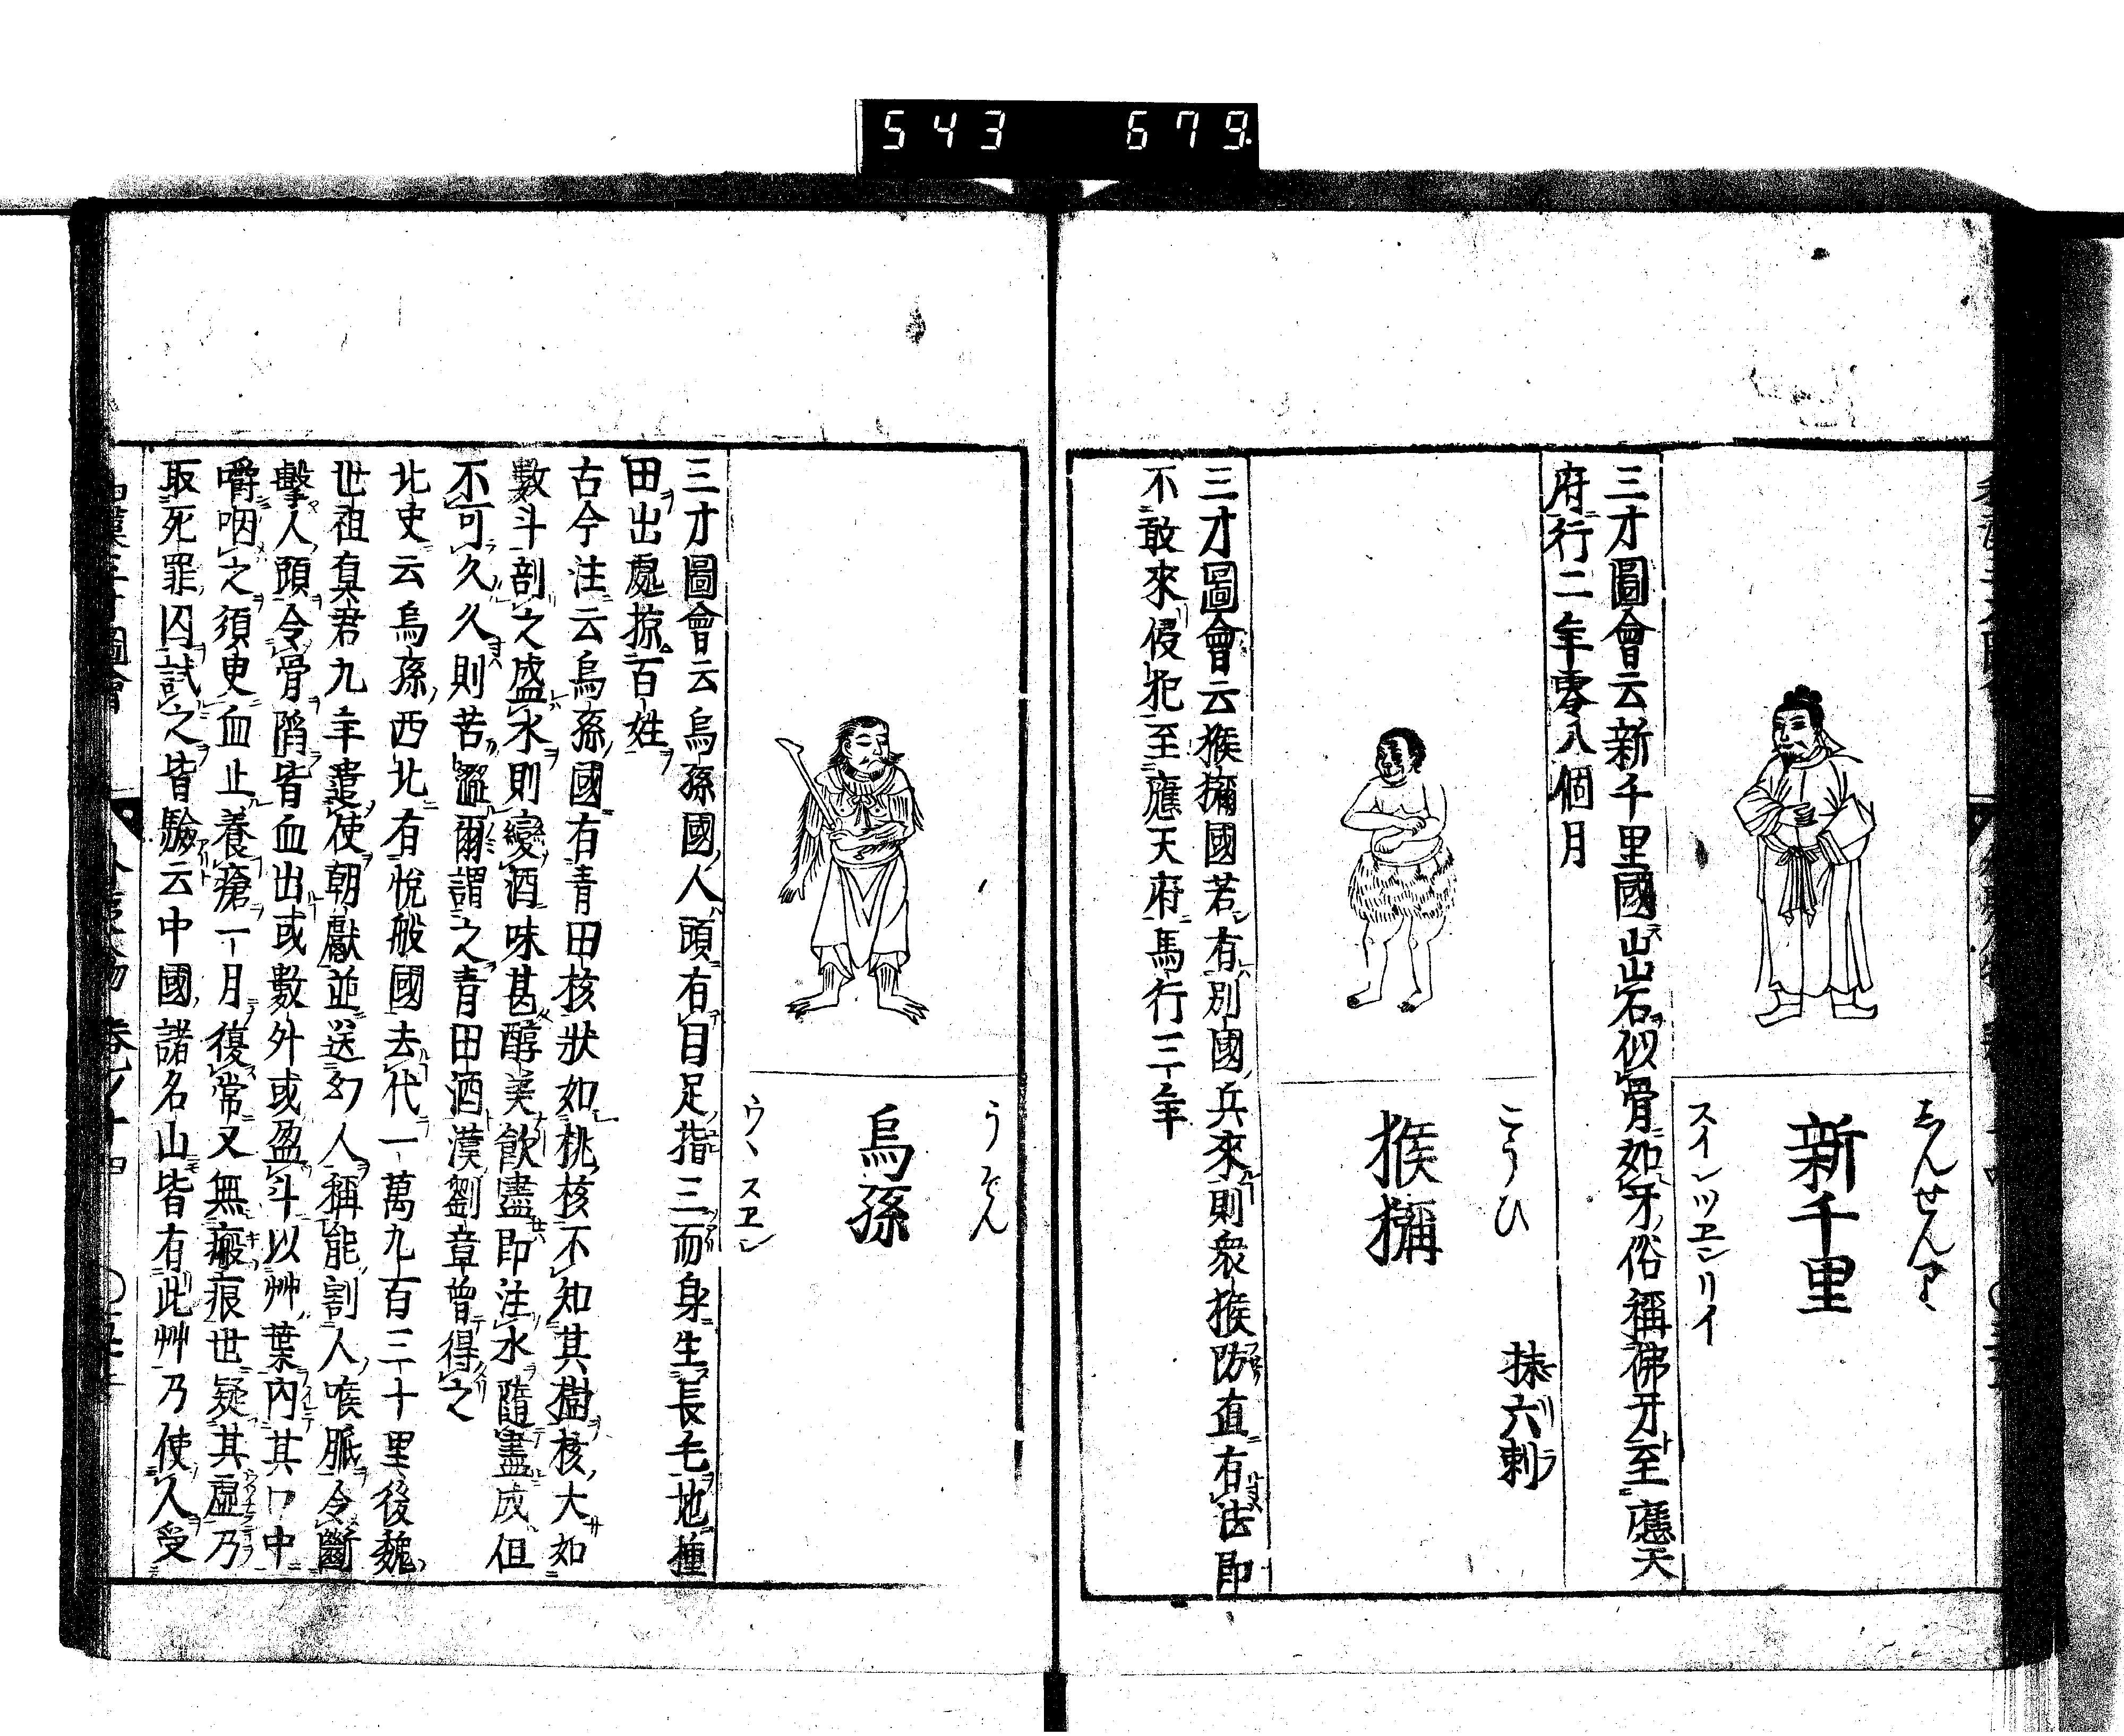 543 679
しんせんり
新千里
スインツヱンリイ
三才圖會云新千里國山出石似骨如牙俗稱佛牙至應天
府行二年零八個月
こうひ
猴獼
抹六刺
三才圖會云猴獼國若有別國兵來則衆猴防直有法即
不敢來侵犯至應天府馬行三年
うそん
烏孫
ウヽスヱン
三才圖會云烏孫國人頭有目足指三而身生長毛地種
田出處掠百姓
古今注云烏孫國有青田核狀如桃核不知其樹核大如
數斗剖之盛水則變酒味甚醇美飲盡即注水隨盡成但
不可久久則苦澀爾謂之青田酒漢劉章曾得之
北史云烏孫西北有悅般國去代一萬九百三十里後魏
世祖真君九年遣使朝獻並送幻人稱能割人喉脈令斷
擊人頭令骨陷皆血出或數外或盈斗以艸葉內其口中
嚼咽之須臾血止養瘡一月復常又無瘢痕世疑其虛乃
取死罪囚試之皆驗云中國諸名山皆有此艸乃使人受